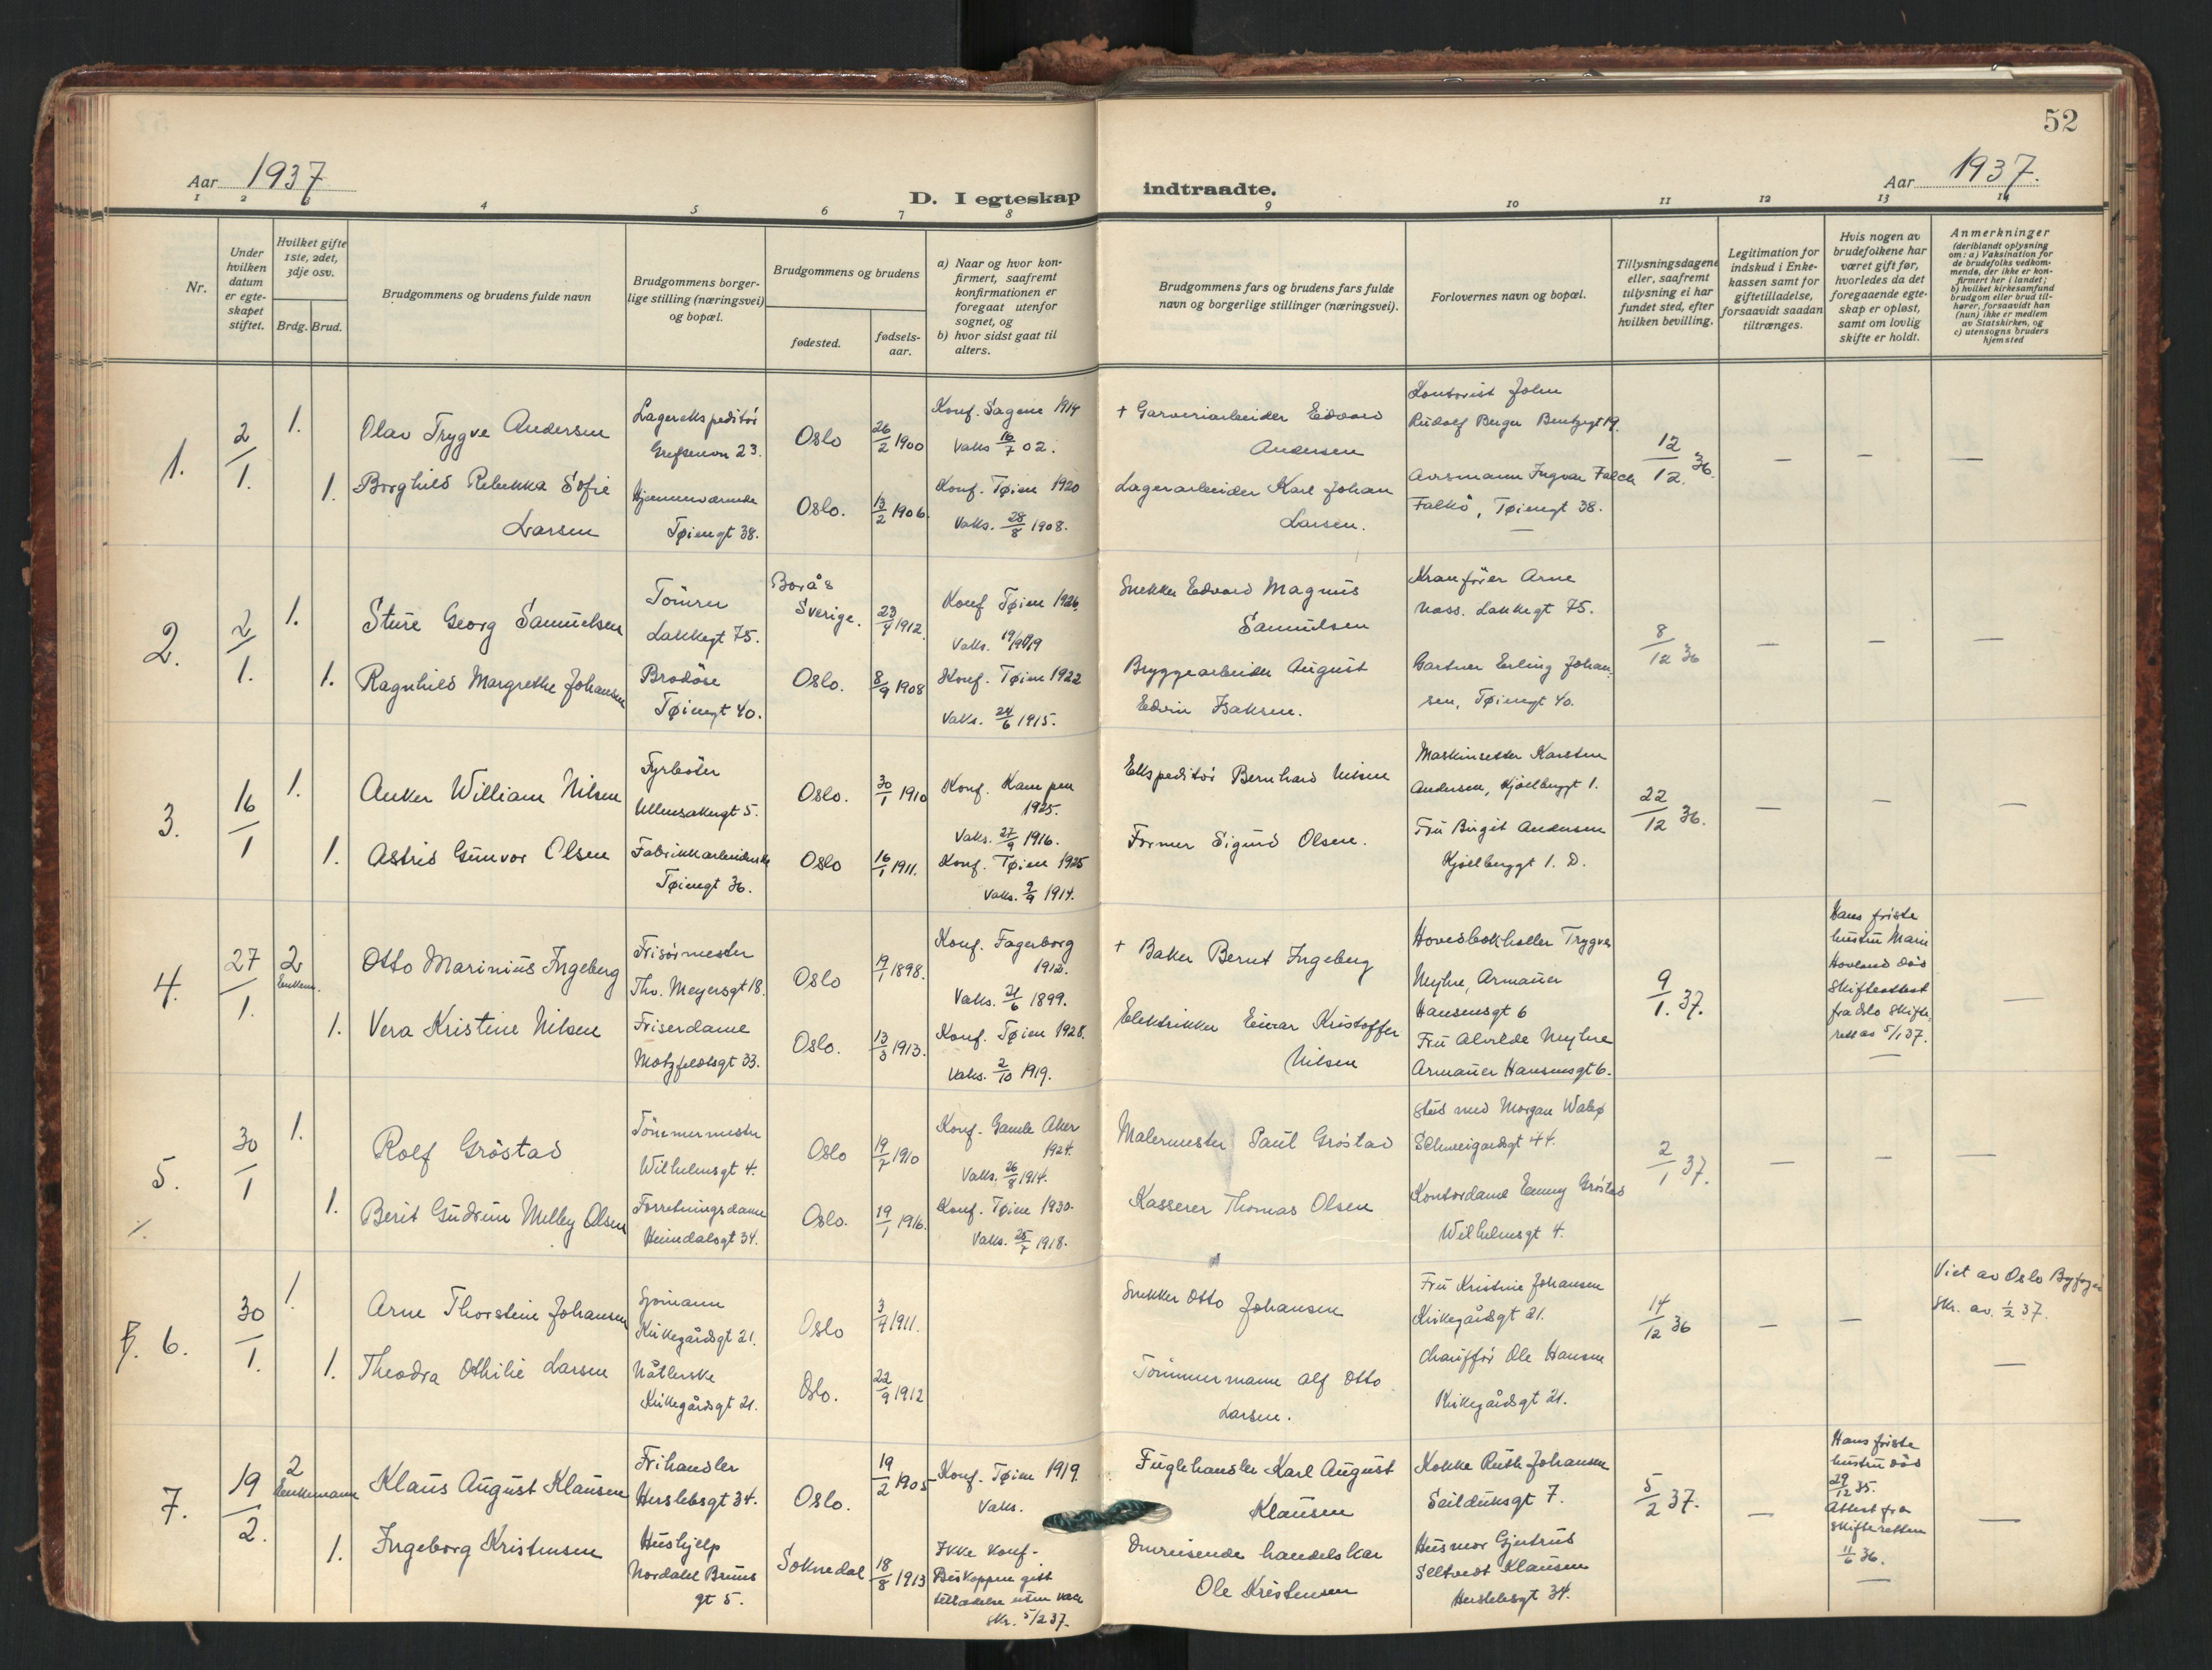 52
Aar 1937
D. I egteskap indtraadte.
Aar 1937.
1 2 3 4 5 6 7 8 9 10 11 12 13 14
Nr.
Under
hvilken
datum
er egte-
skapet
stiftet.
Hvilket gifte
1ste, 2det,
3dje osv.
Brdg. Brud.
Brudgommens og brudens fulde navn
Brudgommens borger-
lige stilling (næringsvei)
og bopæl.
Brudgommens og brudens
fødested.
fødsels-
aar.
a) Naar og hvor kon-
firmert, saafremt
konfirmationen er
foregaat utenfor
sognet, og
b) hvor sidst gaat til
alters.
Brudgommens fars og brudens fars fulde
navn og borgerlige stillinger (næringsvei).
Forlovernes navn og bopæl.
Tillysningsdagene
eller, saafremt
tillysning ei har
fundet sted, efter
hvilken bevilling.
Legitimation for
indskud i Enke-
kassen samt for
giftetilladelse,
forsaavidt saadan
tiltrænges.
Hvis nogen av
brudefolkene har
været gift før,
hvorledes da det
foregaaende egte-
skap er opløst,
samt om lovlig
skifte er holdt.
Anmerkninger
(deriblandt oplysning
om: a) Vaksination for
de brudefolks vedkom-
mende, der ikke er kon-
firmert her i landet;
b) hvilket kirkesamfund
brudgom eller brud til-
hører, forsaavidt han
(hun) ikke er medlem
av Statskirken, og
c) utensogns bruders
hjemsted
1.
2/1.
1.
Olav Trygve Andersen
Lagerekspeditör
Grefsenvn 23.
Oslo
26/2 1900
Konf. Sagene 1914
Vaks 16/7 02.
+ Garveriarbeider Edvard
Andersen
Kontorist John
Rudolf Berger Bentzgt 19.
12/12 36
—
—
—
1.
Borghild Rebekka Sofie
Larsen
Hjemmeværende
Tøiengt 38.
Oslo.
13/2 1906.
Konf. Tøien 1920
Vaks. 28/8 1908.
Lagerarbeider Karl Johan
Larsen.
Avismann Ingvar Falch
Falkö, Tøiengt 38.
2.
2/1.
1.
Sture Georg Samuelsen
Tömrer
Lakkegt 75.
Borås
Sverige.
23/4 1912.
Konf Tøien 1926.
Vaks. 19/9 19
Snekker Edvard Magnus
Samuelsen
Kranförer Arne
Næss. Lakkegt 75.
8/12 36
—
—
—
1.
Ragnhild Margrethe Johansen
Brodöse
Tøiengt 40.
Oslo.
8/9 1908
Konf. Tøien 1922
Vaks. 24/6 1915.
Bryggearbeider August
Edvin Isaksen.
Gartner Erling Johan-
sen, Tøiengt 40.
3.
16/1
1.
Anker William Nilsen
Fyrböter
Ullensakergt 5.
Oslo.
30/1 1910
Konf. Kampen
1925.
Vaks. 27/9 1916.
Ekspeditör Bernhard Nilsen
Maskinsetter Karsten
Andersen, Kjölberggt 1.
22/12 36.
—
—
—
1.
Astrid Gunvor Olsen
Fabrikkarbeiderske
Tøiengt 36.
Oslo
16/1 1911.
Konf. Tøien 1925
Vaks. 9/9 1914.
Former Sigurd Olsen.
Fru Birgit Andersen
Kjölberggt 1. D.
4.
27/1.
2
Enkem.
Otto Marinius Ingeberg
Frisörmester
Thv. Meyersgt 18.
Oslo
19/1 1898.
Konf. Fagerborg
1912.
Vaks. 21/6 1899.
+ Baker Bernt Ingeberg
Hovedbokholler Trygve
Myhre, Armauer
Hansensgt 6
9/1. 37.
Hans förste
hustru Marie
Hovland död
Skifteattest
fra Oslo Skifte-
rett av 5/1 37.
—
1.
Vera Kristine Nilsen
Friserdame
Motzfeldtsgt 33.
Oslo.
13/3 1913.
Konf. Tøien 1928.
Vaks. 2/10 1919.
Elektriker Einar Kristoffer
Nilsen
Fru Alvilde Myhre
Armauer Hansensgt 6.
5.
30/1
1.
Rolf Gröstad
Tömmermester
Wilhelmsgt 4.
Oslo
19/7 1910
Konf. Gamle Aker
1924.
Vaks. 26/8 1914.
Malermester Paul Gröstad
Stud med Morgan Walsø
Schweigaardsgt 44.
2/1 37.
—
—
—
1.
Berit Gudrun Melby Olsen
Forretningsdame
Heimdalsgt 34.
Oslo.
19/1 1916.
Konf. Tøien 1930.
Vaks. 25/7 1918.
Kasserer Thomas Olsen
Kontordame Emmy Gröstad
Wilhelmsgt 4.
6.
30/1.
1.
Arne Thorstein Johansen
Sjömann
Kirkegårdsgt 21.
Oslo
3/9 1911.
Snekker Otto Johansen
Fru Kristine Johansen
Kirkegårdsgt 21.
14/12 36
—
—
Viet av Oslo Byfogd
Skr. av. 1/2 37.
—
1.
Theodra Othilie Larsen
Nåtlerske
Kirkegårdsgt 21.
Oslo.
22/9 1912
Tömmermann Alf Otto
Larsen.
Chaufför Ole Hansen
Kirkegårdsgt 21.
7.
19/2.
2
Enkemann
Klaus August Klausen
Frihandler
Herslebsgt 34.
Oslo.
19/2 1905
Konf. Tøien 1919.
Vaks.
Fuglehandler Karl August
Klausen
Kokke Ruth Johansen
Seilduksgt 7.
5/2 37.
—
Hans förste
hustru död
29/12 35.
Attest fra
Skifteretten
11/6 36.
—
—
1.
Ingeborg Kristensen
Hushjelp
Nordahl Bruns
gt 5.
Soknedal
18/8 1913
Ikke konf-
Biskoppen gitt
tilladelse uten vaks
Skr. 5/2 37.
Omreisende handelskar
Ole Kristensen
Husmor Gjertrud
Seltvedt Klausen
Herslebsgt 34.